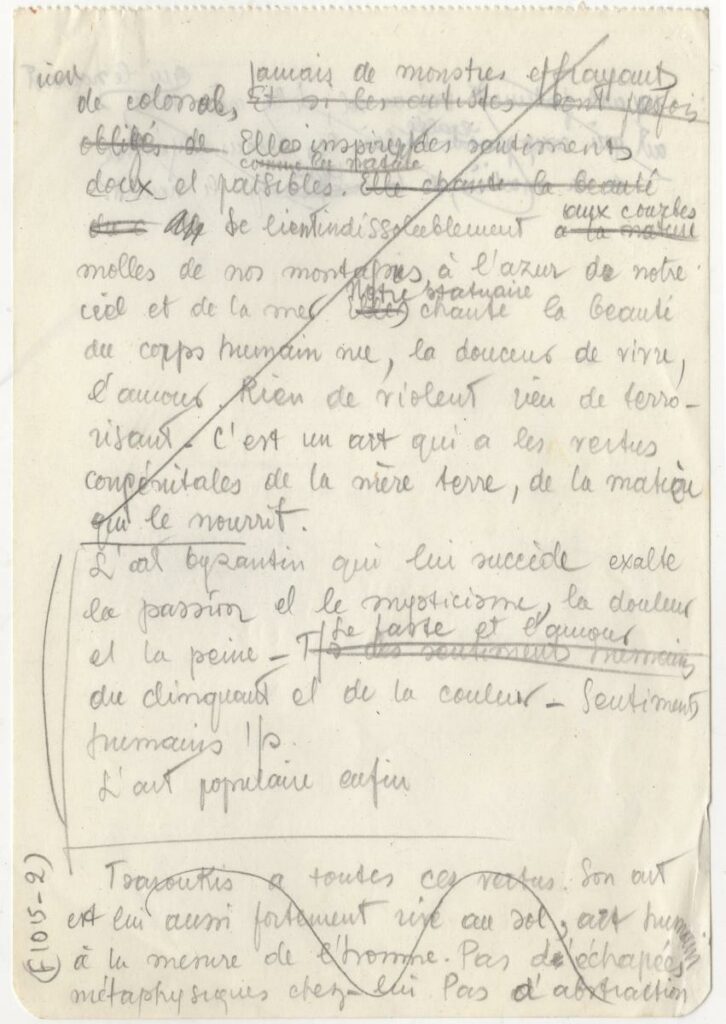 rien Jamais de monstres effrayants
de colossal, Et si les artistes sont parfois
obligés de Elles inspirent des sentiments
comme la nature
doux et paisibles. Elle chante la beauté
aux courbes
Se lient indissolublement à la nature
molles de nos montagnes, à l'azur de notre
Notre statuaire
ciel et de la mer chante la beauté
du corps humain nu, la douceur de vivre,
l'amour. Rien de violent rien de terro-
risant. C'est un art qui a les vertus
congénitales de la mère terre, de la matière
qui le nourrit.
L'art byzantin qui lui succède exalte
la passion et le mysticisme, la douleur
Le faste et l'amour
et la peine – des sentiments humains
du clinquant et de la couleur – Sentiments
humains
L'art populaire enfin
Tsarouxis a toutes ces vertus. Son art
est lui aussi fortement rivé au sol, art humain
à la mesure de l'homme. Pas d'échapées
métaphysiques chez-lui Pas d'abstraction
(F1015-2)